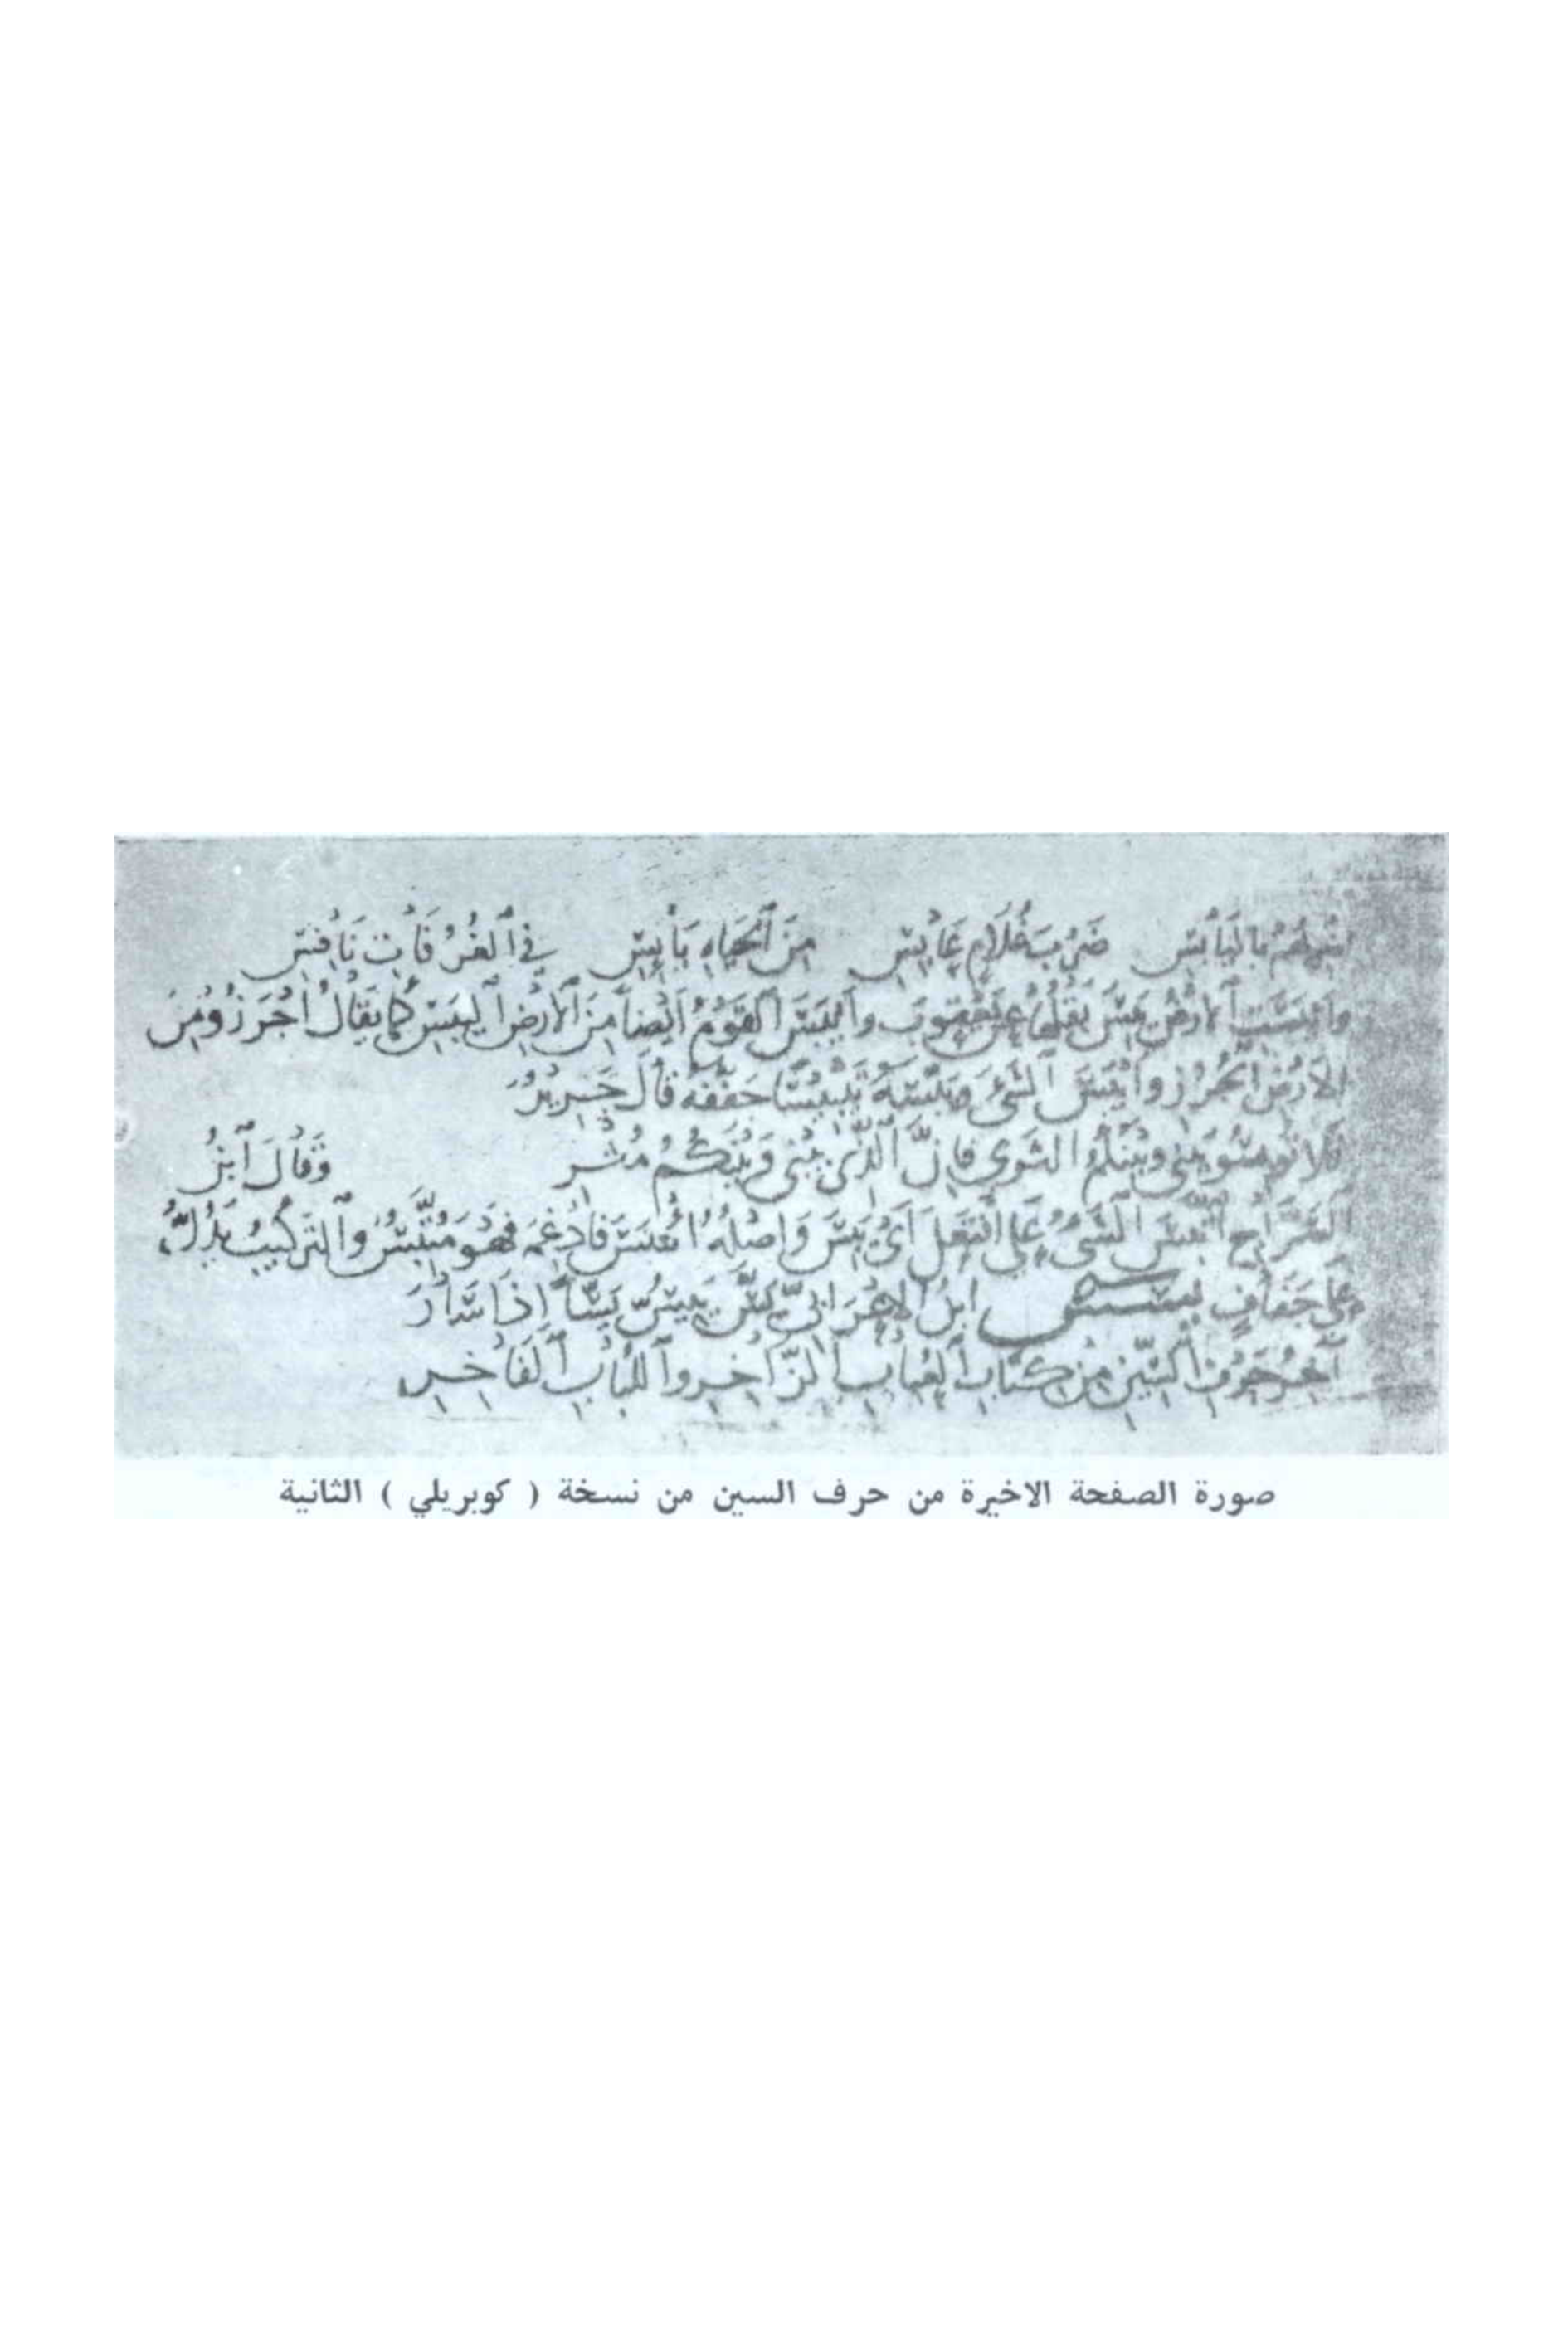 بِاليَابِسِ ضَرْبَ غُلَامٍ عَابِسِ مِنَ ٱلْحَيَاهِ يَائِسِ فِي ٱلْغُرُفَاتِ نَافِسِ
وَأَيْبَسَتِ ٱلْأَرْضُ يَبِسَ بَقْلُهَا عَنْ يَعْقُوبَ وَأَيْبَسَ ٱلْقَوْمُ أَيْضاً مِنَ ٱلْأَرْضِ ٱلْيَبَسِ كَمَا يُقَالُ أَجْرَزُوْ مِنَ
الأَرْضِ الْجُرُزِ وَأَيْبَسَ ٱلشَّيْءَ وَيَبَّسَهُ تَيْبِيْسًا جَفَّفَهُ قَالَ جَرِيْرُ
فَلَا تُوبِسُوا بَيْنِي وَبَيْنَكُمُ الثَّرَى فَإِنَّ ٱلَّذِي بَيْنِي وَبَيْنَكُمُ مُثْرِ وَقَالَ ٱبْنُ
السَّرَّاجِ ٱتَّبَسَ ٱلشَّيْءُ عَلَى ٱفْتَعَلَ أَيْ يَبِسَ وَأَصْلُهُ ائْتَبَسَ فَأُدْغِمَ فَهُوَ مُتَّبِسٌ وَٱلتَّرْكِيْبُ يَدُلُّ
عَلَى جَفَافٍ يسس ابنُ الأَعْرَابِيِّ يَسَّ يَيِسُّ يَسّاً إِذَا سَارَ
آخِرُ حَرْفِ ٱلسِّيْنِ مِنْ كِتَابِ ٱلْعُبَابِ ٱلزَّاخِرِ وَٱللُّبَابِ ٱلْفَاخِرِ
صورة الصفحة الاخيرة من حرف السين من نسخة ( كوبريلي ) الثانية